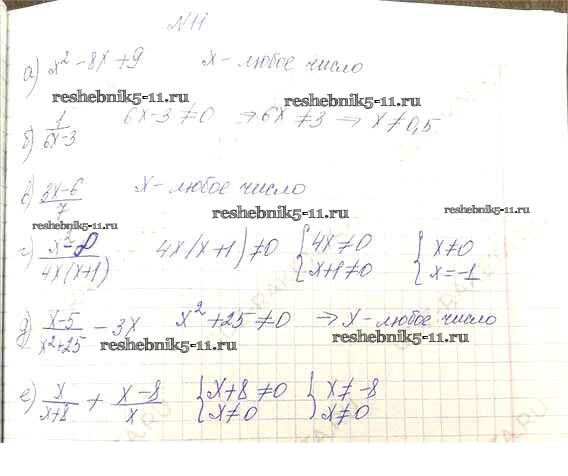 №11
а) x² - 8x + 9 x - любое число
reshebnik5-11.ru reshebnik5-11.ru
б) 1/(6x-3) 6x-3≠0 ⇒ 6x≠3 ⇒ x≠0,5
в) (3x-6)/7 x - любое число
reshebnik5-11.ru reshebnik5-11.ru
г) (x²-8)/(4x(x+1)) 4x(x+1)≠0 { 4x≠0 x+1≠0 { x≠0 x=-1
д) (x-5)/(x²+25) - 3x x²+25≠0 ⇒ x - любое число
reshebnik5-11.ru reshebnik5-11.ru
е) x/(x+8) + (x-8)/x { x+8≠0 x≠0 { x≠-8 x≠0